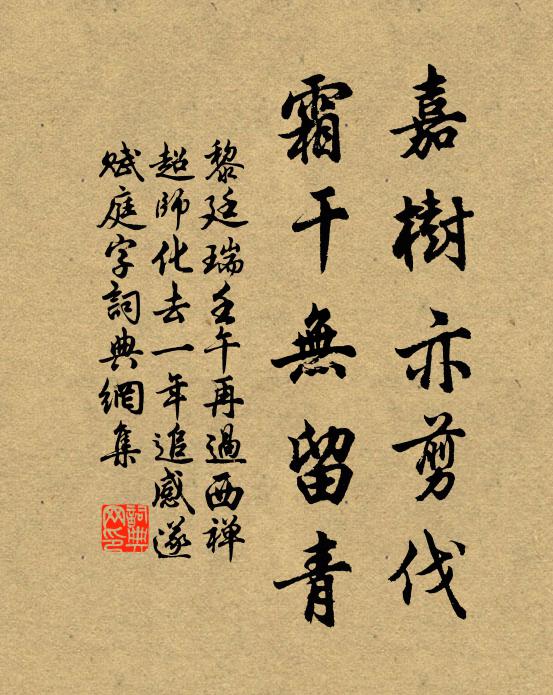 嘉樹亦剪伐
霜干無留青
黎廷瑞壬午再過西禅
超師化去一年追感遂
赋庭字詞典網集
詞典
网印